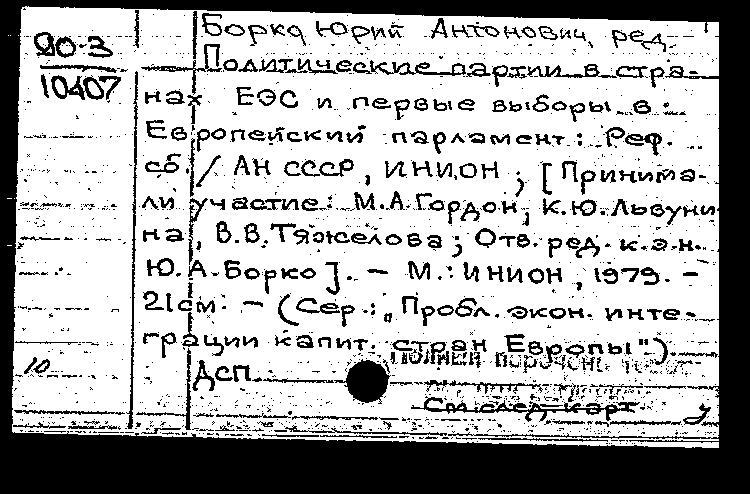 Борко Юрий Антонович, ред.
90-3
10407
Политические партии в стра-
нах ЕЭС и первые выборы в
Европейский парламент: Реф.
сб. / АН СССР, ИНИОН; [Принима-
ли участие: М.А.Гордон, К.Ю.Львуни-
на, В.В.Тяжелова; Отв. ред. к.э.н.
Ю.А.Борко]. - М.: ИНИОН, 1979. -
21см. - (Сер.: „Пробл. экон. инте-
грации капит. стран Европы")
10
Дсп.
См. след. карт.